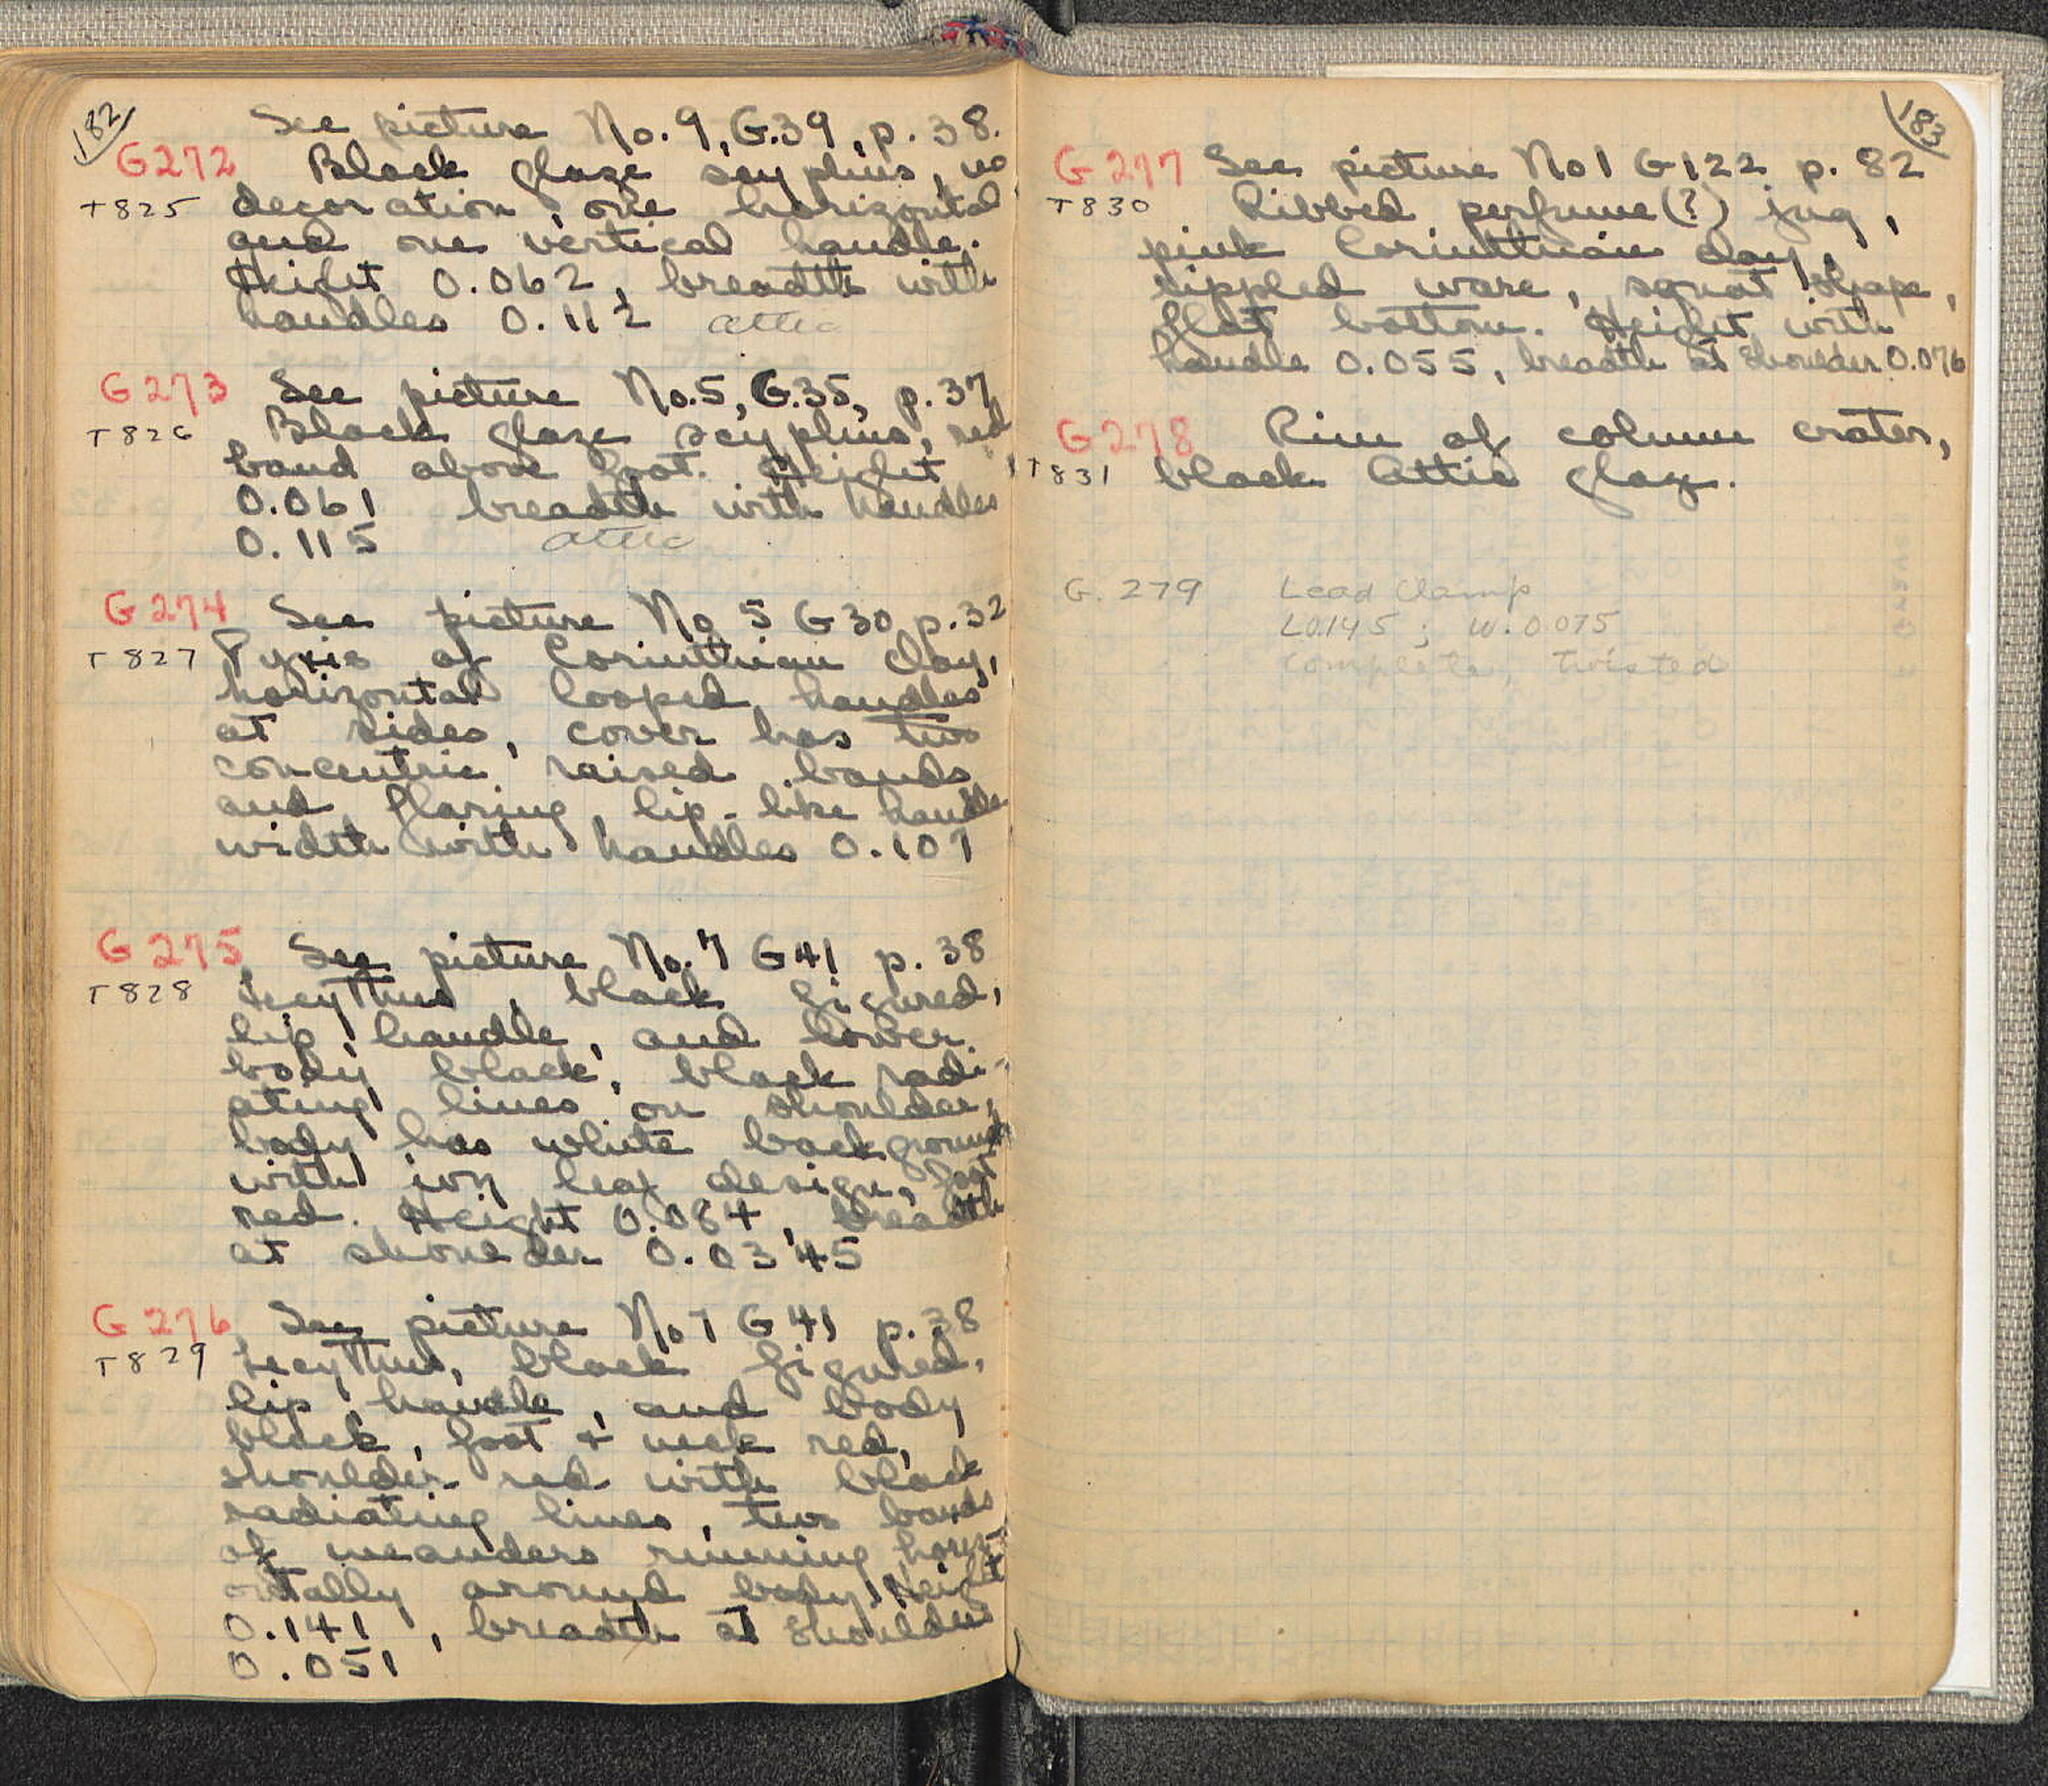 182
See picture No. 9, G.39, p. 38.
G272 Black glaze scyphus, no
T825 decoration, one horizontal
and one vertical handle.
Height 0.062, breadth with
handles 0.112 attic
G273 See picture No.5, G.35, p. 37
T826 Black glaze scyphus, red
band above foot. Height
0.061 breadth with handles
0.115 attic
G274 See picture No 5 G30 p.32
T827 Pyxis of Corinthian clay,
horizontal looped handles
at sides, cover has two
concentric raised bands
and flaring, lip-like handle
width with handles 0.107
G275 See picture No.7 G41 p. 38
T828 Lecythus, black figured,
lip, handle, and lower
body black, black radi-
ating lines on shoulder,
body has white background
with ivy leaf design, foot
red. Height 0.084, breadth
at shoulder 0.0345
G276 See picture No 7 G41 p. 38
T829 Lecythus, black figured,
lip, handle, and body
black, foot + neck red,
shoulder red with black
radiating lines, two bands
of meanders running horiz-
ontally around body. Height
0.141, breadth at shoulder
0.051
183
G277 See picture No 1 G122 p. 82
T830 Ribbed perfume(?) jug,
pink Corinthian clay,
rippled ware, squat shape,
flat bottom. Height with
handle 0.055, breadth at shoulder 0.076
G278 Rim of column crater,
T831 black Attic glaze.
G.279 Lead Clamp
L0.145; W.0.075
Complete, twisted